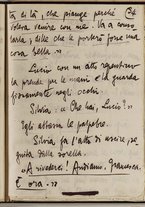 ta, si là, che piange perché
voleva venire con me. Va a conso-
larla, dille che le porterò
cosa bella."
Lucio con un atto
la prende per le mani e la guarda
fissamente negli occhi.
Silvia: "Che hai, Lucio?"
Egli abbassa le palpebre.
Silvia fa l'atto di uscire, se-
guita dalla sorella.
"A rivederci! Andiamo, Francesca.
È ora."